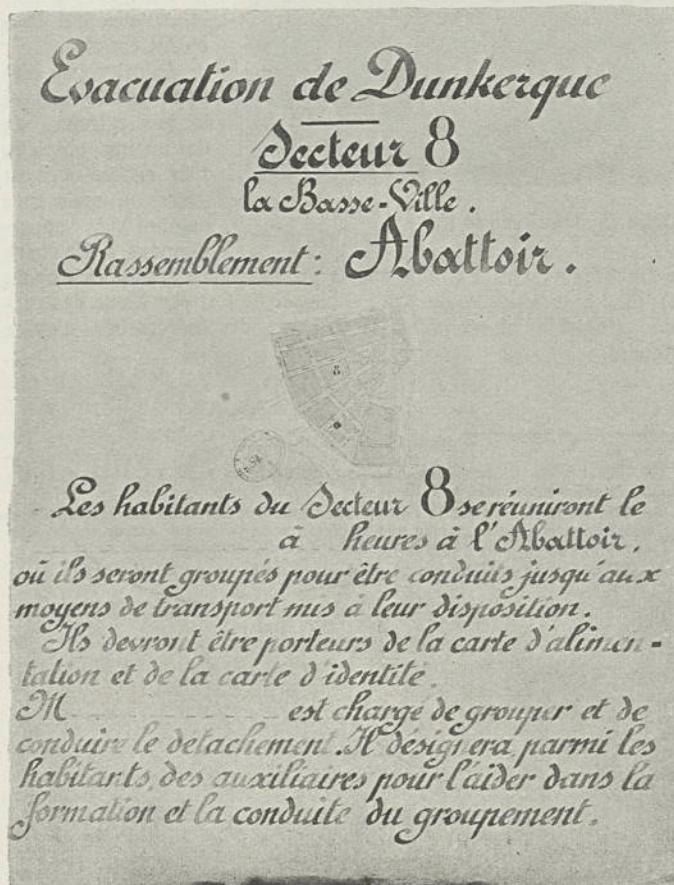 Evacuation de Dunkerque
Secteur 8
la Basse-Ville.
Rassemblement: Abattoir.
8
Les habitants du Secteur 8 se réuniront le
à heures à l'Abattoir,
où ils seront groupés pour être conduits jusqu'aux
moyens de transport mis à leur disposition.
Ils devront être porteurs de la carte d'alimen-
tation et de la carte d'identité.
M est chargé de grouper et de
conduire le détachement. Il désignera parmi les
habitants, des auxiliaires pour l'aider dans la
formation et la conduite du groupement.